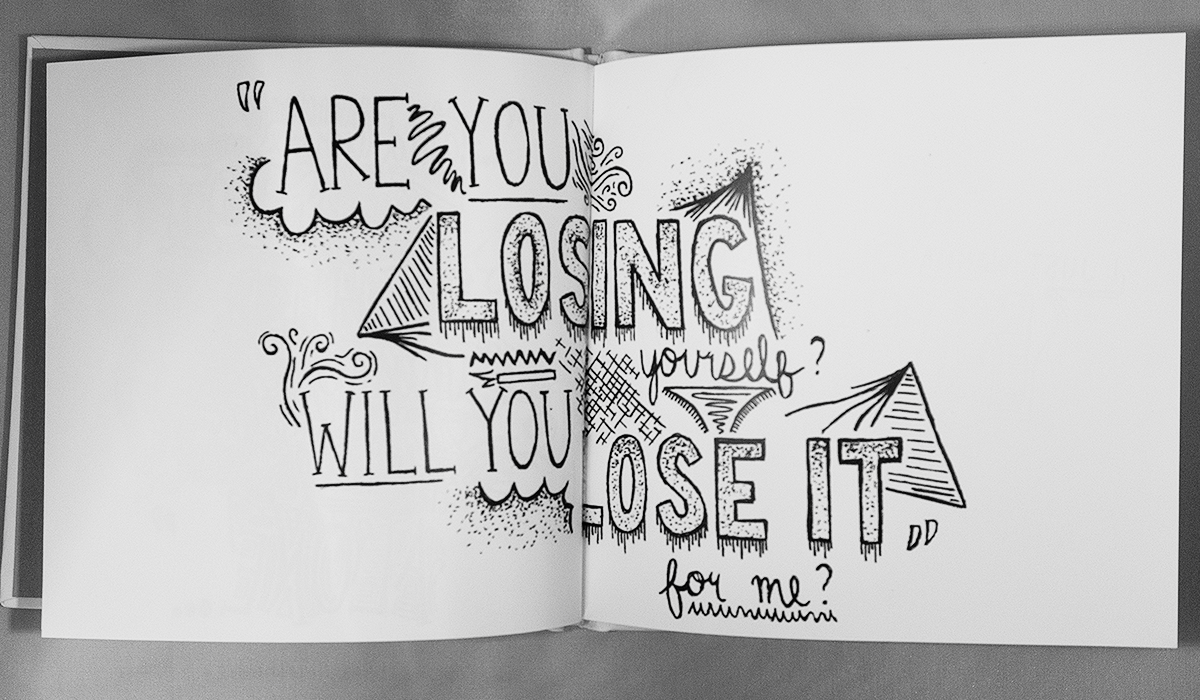 "ARE YOU
LOSING
yourself?
WILL YOU
LOSE IT"
for me?